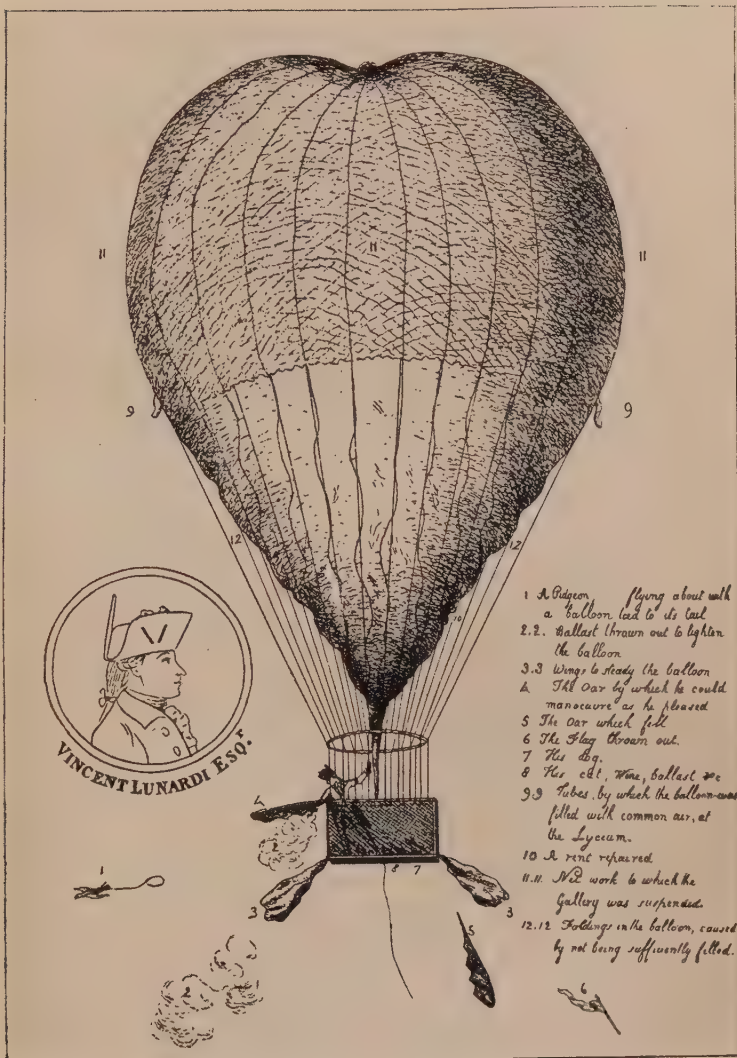 11
11
11
9
9
12
12
10
1 A Pidgeon, flying about with
a balloon tied to its tail
2.2. Ballast thrown out to lighten
the balloon
3.3 Wings to steady the balloon
4 The Oar by which he could
manoeuvre as he pleased
5 The Oar which fell
6 The Flag thrown out.
7 His dog.
8 His cat, Wine, ballast &c
9.9 Tubes, by which the balloon was
filled with common air, at
the Lyceum.
10 A rent repaired
11.11. Net work to which the
Gallery was suspended.
12.12 Foldings in the balloon, caused
by not being sufficently filled.
VINCENT LUNARDI ESQ.r
4
2
1
8 7
3
3
5
2
6